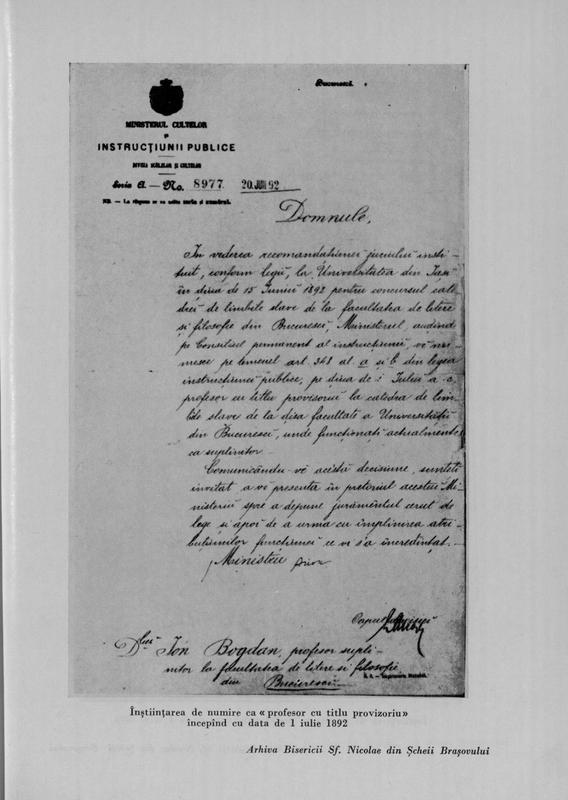 București.
MINISTERUL CULTELOR
ȘI
INSTRUCȚIUNII PUBLICE
DIVISIA SCÓLELOR ȘI CULTELOR
Seria A. — No. 8977. 20.JUN 92
NB. — La răspuns se va adăuga seria și numărul.
Domnule,
In vederea recomandațiunei juriului insti-
tuit, conform legii, la Universitatea din Iasi
în diua de 15 Iuniŭ 1892 pentru concursul cate-
drei de limbile slave de la facultatea de litere
și filosofie din Bucuresci, Ministerul, audind
pe Consiliul permanent al instrucțiunii, vĕ nu-
mesce pe temeiul art. 348 al. a și b din legea
instrucțiunei publice, pe diua de 1 Iuliŭ a.c.
profesor cu titlu provisoriŭ la catedra de lim-
bile slave de la disa facultate a Universității
din Bucuresci, unde funcționați actualmente
ca suplinitor.
Comunicându-vĕ acéstă decisiune, sunteți
invitat a vĕ presenta în pretoriul acestui Mi-
nisteriŭ spre a depune jurămîntul cerut de
lege și apoi de a urma cu împlinirea atri-
buțiunilor funcțiunei ce vi s'a încredințat.
Ministru
Dlui Ión Bogdan, profesor supli-
nitor la facultatea de litere și filosofie
din Bucuresci
Înștiințarea de numire ca « profesor cu titlu provizoriu»
începînd cu data de 1 iulie 1892
Arhiva Bisericii Sf. Nicolae din Șcheii Brașovului